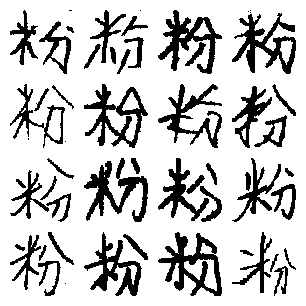 粉粉粉粉
粉粉粉粉
粉粉粉粉
粉粉粉粉